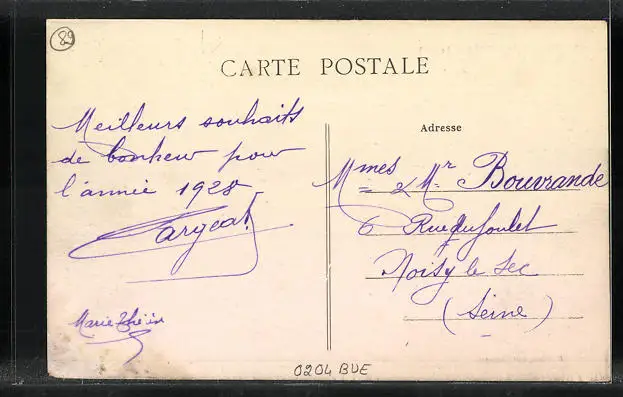 89
CARTE POSTALE
Meilleurs souhaits
de bonheur pour
l'année 1928
Cargeat
Marie
Adresse
Mmes & Mr Bouvrande
6 Rue du Goulet
Noisy le Sec
(Seine)
0204 BUE